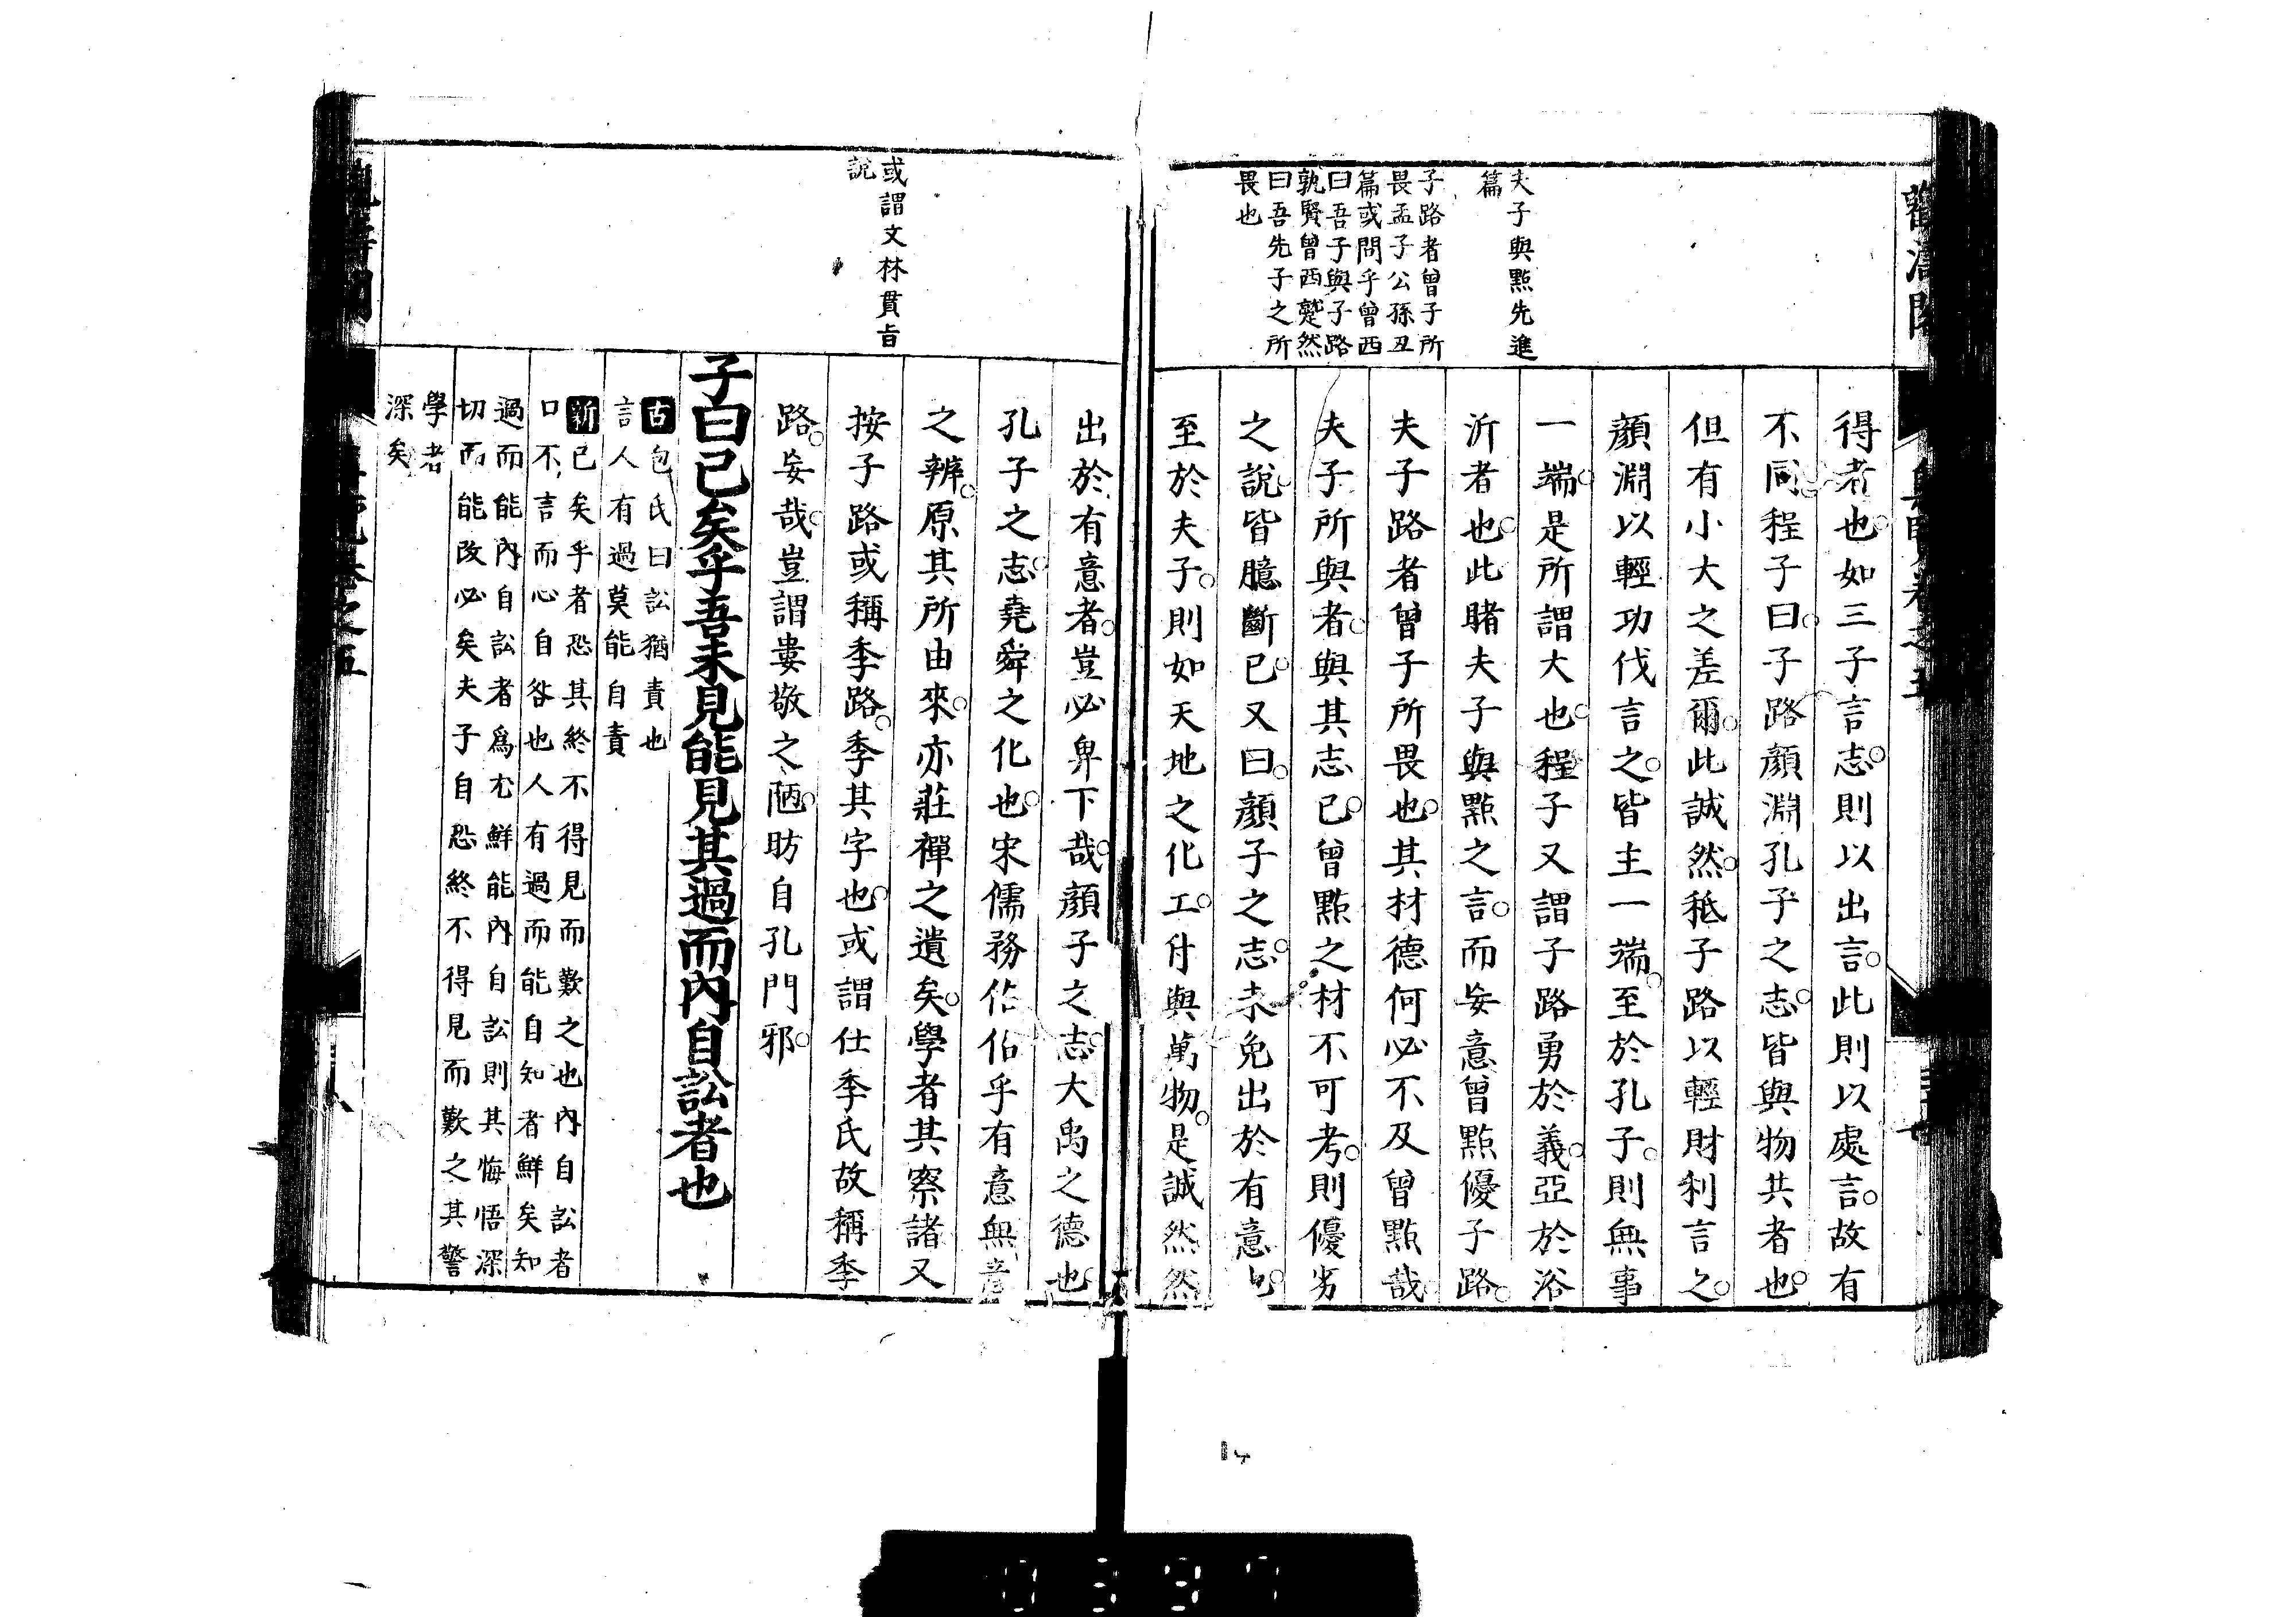 夫子與點先進
篇
子路者曾子所
畏孟子公孫丑
篇或問乎曾西
曰吾子與子路
孰賢曾西蹵然
曰吾先子之所
畏也
得者也如三子言志則以出言此則以處言故有
不同程子曰子路顏淵孔子之志皆與物共者也
但有小大之差爾此誠然秪子路以輕財利言之
顏淵以輕功伐言之皆主一端至於孔子則無事
一端是所謂大也程子又謂子路勇於義亞於浴
沂者也此睹夫子與點之言而妄意曾點優子路
夫子路者曾子所畏也其材德何必不及曾點哉
夫子所與者與其志已曾點之材不可考則優劣
之說皆臆斷已又曰顏子之志未免出於有意也
至於夫子則如天地之化工付與萬物是誠然然
或謂文林貫旨
說
出於有意者豈必卑下哉顏子之志大禹之德也
孔子之志堯舜之化也宋儒務佔佔乎有意無意
之辨原其所由來亦莊禪之遺矣學者其察諸又
按子路或稱季路季其字也或謂仕季氏故稱季
路妄哉豈謂婁敬之陋昉自孔門邪
子曰已矣乎吾未見能見其過而內自訟者也
古包氏曰訟猶責也
言人有過莫能自責
新已矣乎者恐其終不得見而歎之也內自訟者
口不言而心自咎也人有過而能自知者鮮矣知
過而能內自訟者爲尤鮮能內自訟則其悔悟深
切而能改必矣夫子自恐終不得見而歎之其警
學者
深矣